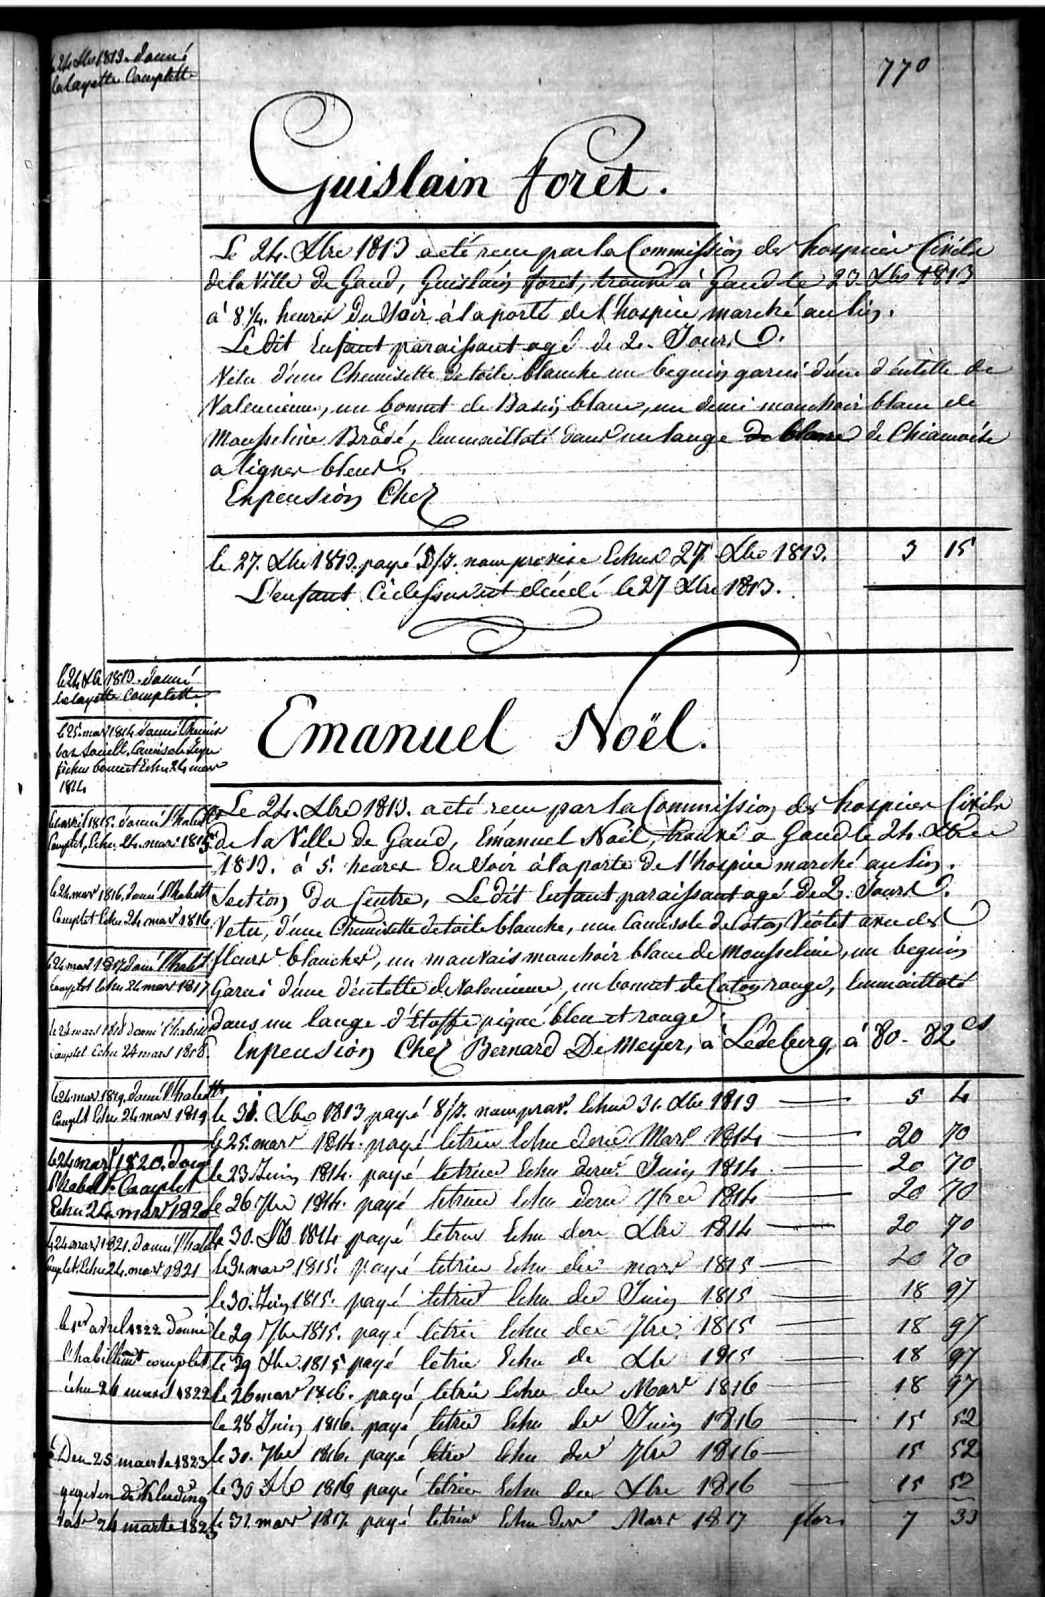 le 24 Xbre 1813. donné
la layette Complette
770
Guislain foret.
Le 24. Xbre 1813 a été recu par la Commission des hospices Civils
de la Ville de Gand, Guislain foret, trouvé à Gand le 23 Xbre 1813
à 8 1/4. heures du Soir à la porte de l'hospice marché au lin.
Le dit Enfant paraissant agé de 2. Jours.
Vetu d'une Chemisette de toile blanche un beguin garni d'une d'entelle de
Valencienne, un bonnet de Basin blanc, un demi mouchoir blanc de
Mousseline Brodé, Emmailloté dans un lange de Chiamoise
a lignes bleus.
En pension Chez
le 27. Xbre 1813. payé nam provise Echus 27 Xbre 1813. 3 15
L'enfant Cidessus est décédé le 27 Xbre 1813.
le 24 Xbre 1813. donné
la layette Complette.
le 25. mars 1814. donné
fichu bonnet Echu 24 mars
1814
Emanuel Noël.
Le 24. Xbre 1813. a été recu par la Commission des hospices Civils
de la Ville de Gand, Emanuel Noël, trouvé a Gand le 24. Xbre
1813. à 5. heures du Soir à la porte de l'hospice marché au lin.
Section du Centre, Le dit Enfant paraissant agé de 2. Jours.
Vetu, d'une Chemisette de toile blanche, une Camisole de Coton Violet avec des
fleurs blanches, un mauvais mouchoir blanc de Mousseline, un beguin
Garni d'une d'entelle de Valencienne, un bonnet de Coton rouge, Emmailloté
dans un lange d'Etoffe piqué bleu et rouge.
En pension Chez Bernard De Meyer, à Ledeberg, à 80 - 82 cs
avril 1815. donné l'habill
Complet, Echu. 24. mars 1815
le 24. mars 1816. donné l'habill
Complet Echu 24 mars 1816.
le 24 mars 1817 donné l'habill
Complet Echu 24 mars 1817
le 24 mars 1818 donné l'habill
Complet Echu 24 mars 1818.
le 24 mars 1819. donné l'habill
Complet Echu 24 mars 1819
le 24 mars 1820. donné
l'habill. Complet
Echu 24 mars 1820
le 24 mars 1821. donné l'habill
Complet. Echu 24. mars 1821
le 1er avril 1822 donné
l'habillement complet
échu 24 mars 1822
Den 25 maerte 1823
gegeven de Kleeding
24 maerte 1823
le 31. Xbre 1813 payé 8/J. nam prov. Echu 31. Xbre 1813 5 4
le 25. mars 1814. payé le trim Echu dern Mars 1814 20 70
le 23 Juin 1814. payé le trim Echu dern. Juin 1814 20 70
le 26 7bre 1814. payé le trim Echu dern 7bre 1814 20 70
le 30. Xbre 1814 payé le trim Echu dern Xbre 1814 20 70
le 31 mars 1815. payé le trim Echu der mars 1815 20 70
le 30. Juin 1815. payé le trim Echu der Juin 1815 18 97
le 29 7bre 1815. payé le trim Echu der 7bre 1815 18 97
le 29 Xbre 1815 payé le trim Echu de Xbre 1815 18 97
le 26 mars 1816. payé le trim Echu der Mars 1816 18 97
le 28 Juin 1816. payé le trim Echu der Juin 1816 15 52
le 30. 7bre 1816. payé le trim Echu der 7bre 1816 15 52
le 30 Xbre 1816 payé le trim Echu der Xbre 1816 15 52
le 31 mars 1817. payé le trim Echu der Mars 1817 flors 7 33